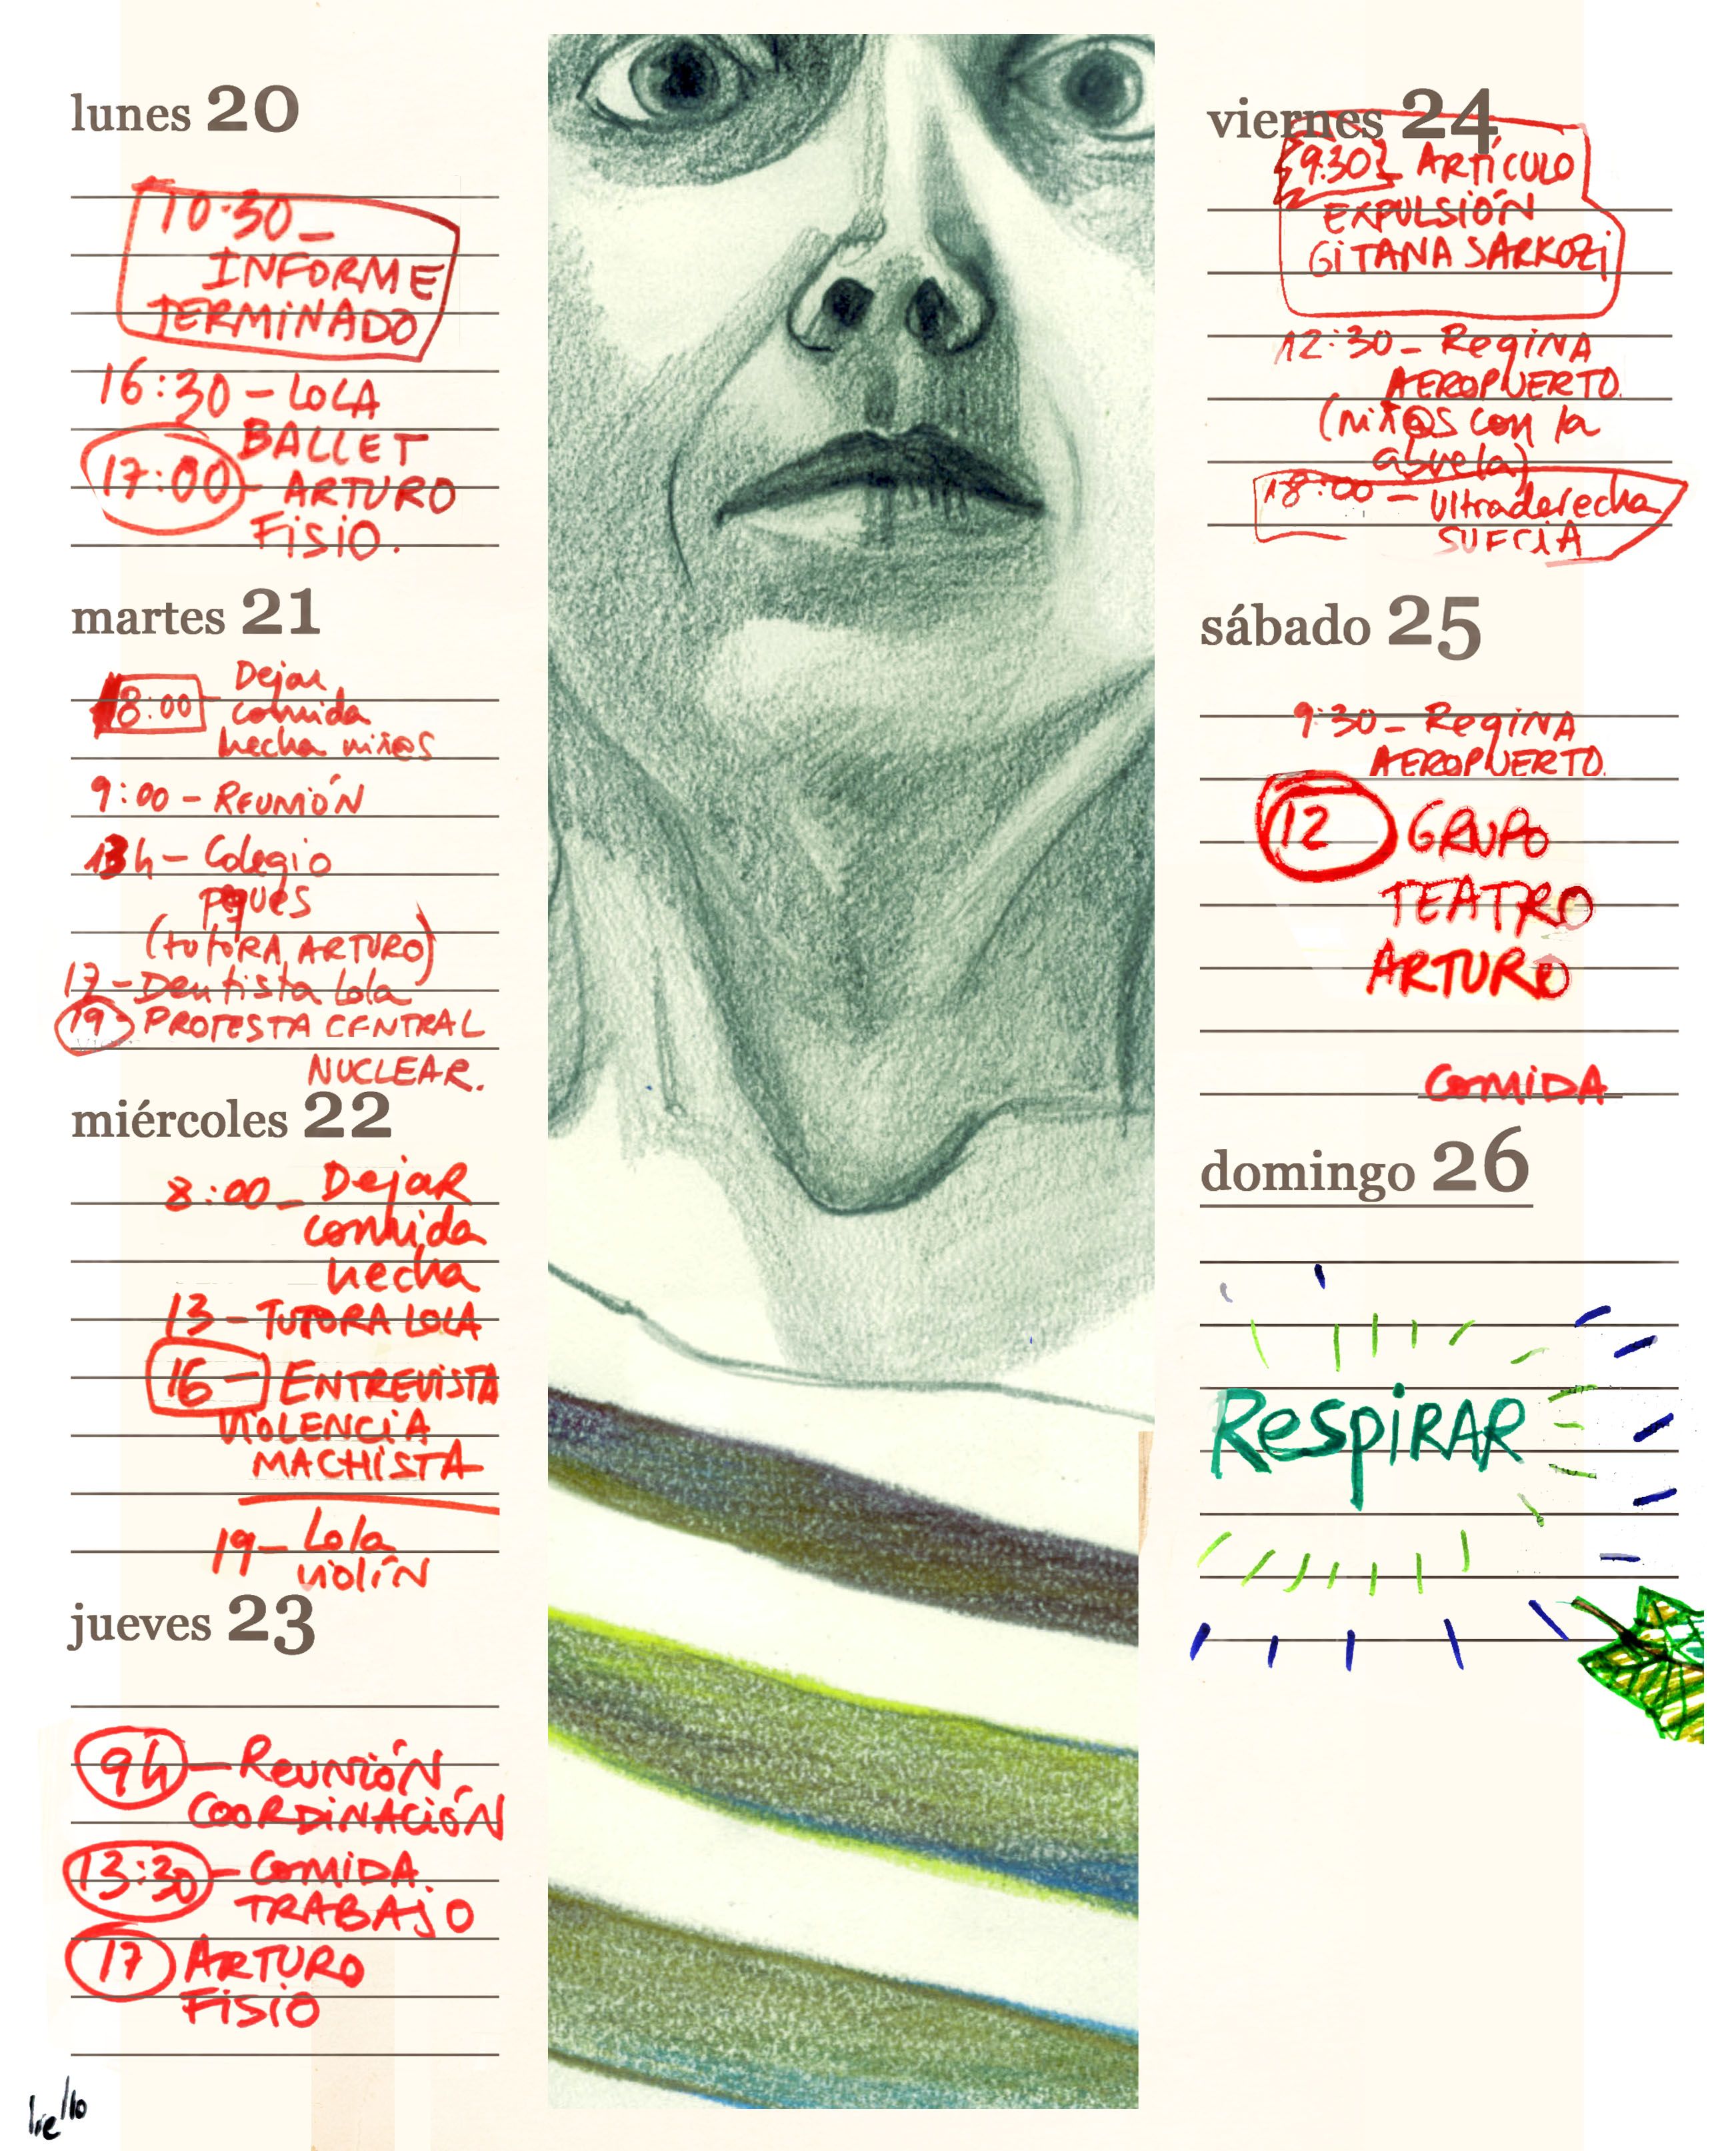 lunes 20
10.30 –
INFORME
TERMINADO
16:30 – LOLA
BALLET
17:00 – ARTURO
FISIO.
martes 21
8:00 – Dejar
comida
hecha niñ@s
9:00 – REUNIÓN
13h – Colegio
peques
(tutora ARTURO)
17 – Dentista Lola
19 PROTESTA CENTRAL
NUCLEAR.
miércoles 22
8:00 – Dejar
comida
hecha
13 – TUTORA LOLA
16 – ENTREVISTA
VIOLENCIA
MACHISTA
19 – Lola
violín
jueves 23
9h – Reunión
COORDINACIÓN
13:30 – COMIDA
TRABAJO
17 ARTURO
FISIO
viernes 24
9.30 ARTÍCULO
EXPULSIÓN
GITANA SARKOZI
12:30 – Regina
AEROPUERTO.
(niñ@s con la
abuela)
18:00 – Ultraderecha
SUECIA
sábado 25
9:30 – Regina
AEROPUERTO.
12 GRUPO
TEATRO
ARTURO
COMIDA
domingo 26
RespiRAR